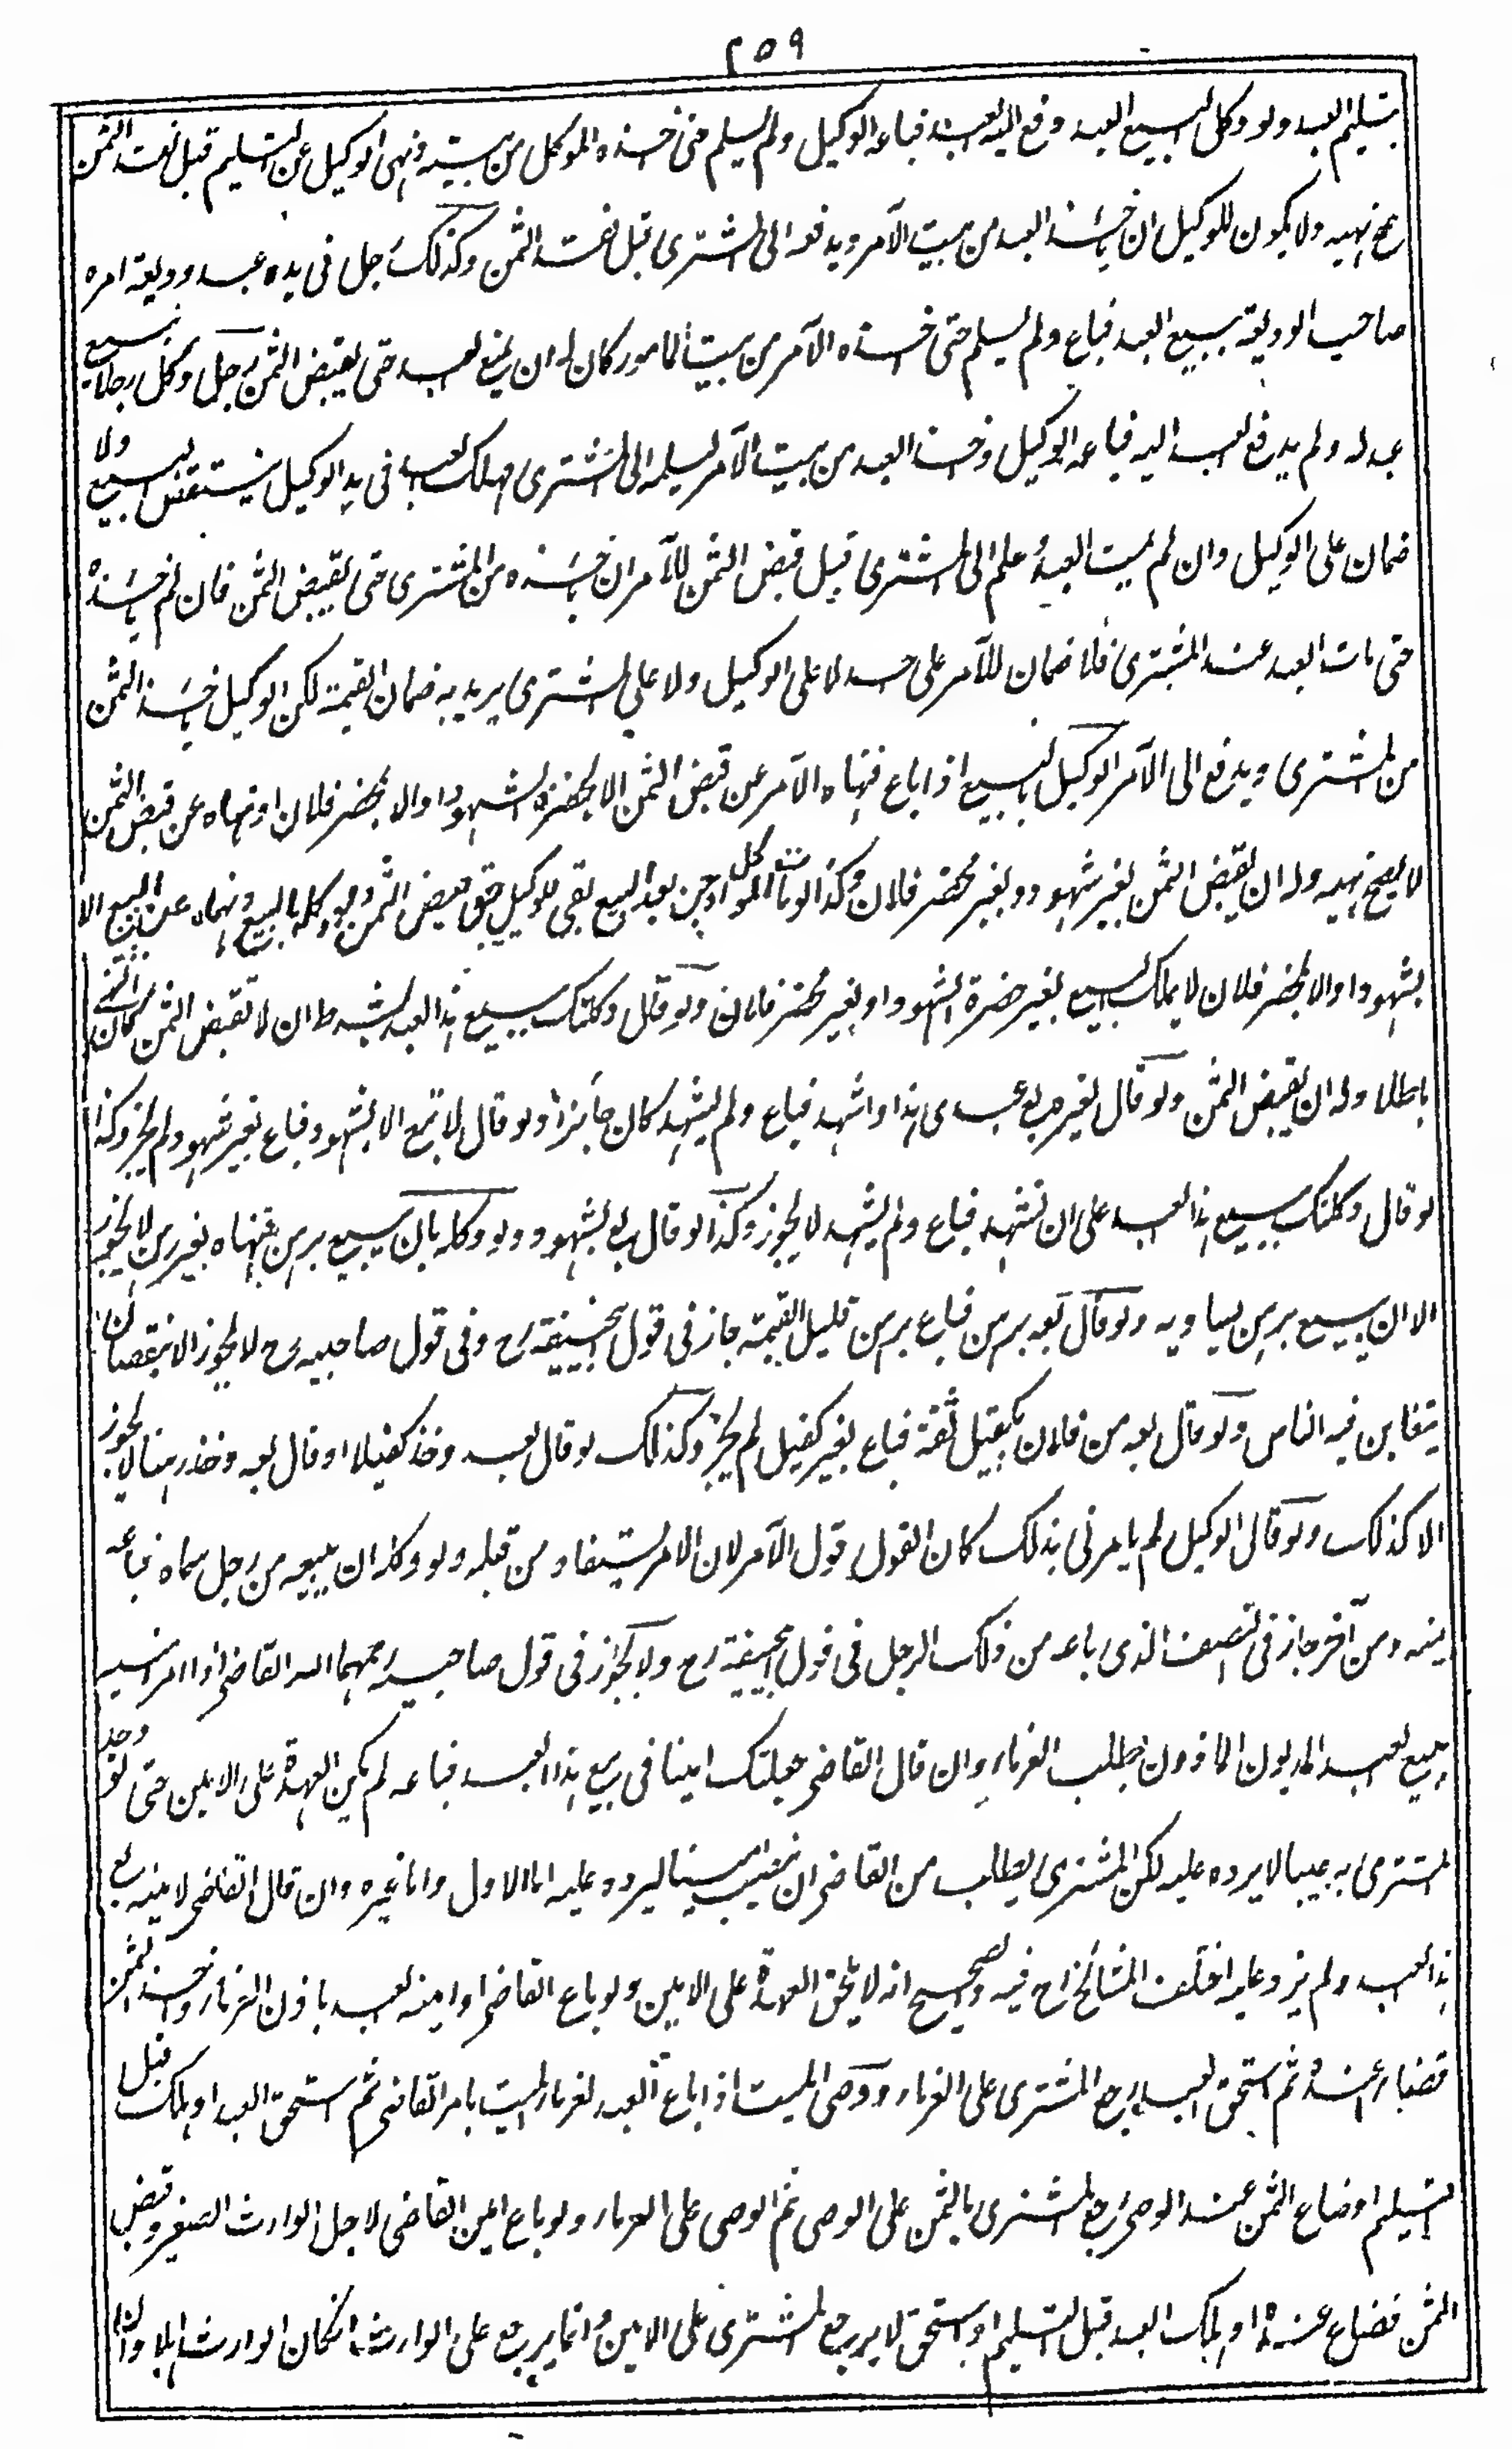 ٢٥٩
بتسليم العبد ولو وكل لبيع العبد ودفع اليه العبد فباعه الوكيل ولم يسلم حتى اخذه الموكل من بيته ونهى الوكيل عن التسليم قبل نقد الثمن
صح نهيه ولا يكون للوكيل ان ياخذ العبد من بيت الآمر ويدفعه الى المشترى قبل نقد الثمن وكذلك رجل فى يده عبد وديعة امره
صاحب الوديعة ببيع العبد فباع ولم يسلم حتى اخذه الآمر من بيت المامور كان له ان يمنع العبد حتى يقبض الثمن رجل وكل رجلا ببيع
عبد له ولم يدفع العبد اليه فباعه الوكيل واخذ العبد من بيت الآمر ليسلمه الى المشترى فهلك العبد فى يد الوكيل ينتقض البيع ولا
ضمان على الوكيل وان لم يمت العبد وسلم الى المشترى قبل قبض الثمن للآمر ان ياخذه من المشترى حتى يقبض الثمن فان لم ياخذه
حتى مات العبد عند المشترى فلا ضمان للآمر على احد لا على الوكيل ولا على المشترى يريد به ضمان القيمة لكن الوكيل ياخذ الثمن
من المشترى ويدفع الى الآمر الوكيل بالبيع اذا باع فنهاه الآمر عن قبض الثمن الا بحضرة الشهود او الا بمحضر فلان او نهاه عن قبض الثمن
لا يصح نهيه وله ان يقبض الثمن بغير شهود وبغير محضر فلان وكذا لو مات الموكل او جن بعد البيع بقى للوكيل حق قبض الثمن ولو وكله بالبيع ونهاه عن البيع الا
بشهود او الا بمحضر فلان لا يملك البيع بغير حضرة الشهود او بغير محضر فلان ولو قال وكلتك ببيع هذا العبد بشرط ان لا تقبض الثمن كان النهى
باطلا وله ان يقبض الثمن ولو قال لغيره بع عبدى هذا واشهد فباع ولم يشهد كان جائزا ولو قال لا تبع الا بشهود فباع بغير شهود لم يجز وكذا
لو قال وكلتك ببيع هذا العبد على ان تشهد فباع ولم يشهد لا يجوز وكذا لو قال بع بشهود ولو وكله بان يبيع برهن فباعه بغير رهن لا يجوز
الا ان يبيع برهن يساويه ولو قال بعه برهن فباع برهن قليل القيمة جاز فى قول ابيحنيفة رح وفى قول صاحبيه رح لا يجوز الا بنقصان
يتغابن فيه الناس ولو قال بعه من فلان بكفيل ثقة فباع بغير كفيل لم يجز وكذلك لو قال بعه وخذ كفيلا او قال بعه وخذ رهنا لا يجوز
الا كذلك ولو قال الوكيل لم يامرنى بذلك كان القول قول الآمر لان الامر يستفاد من قبله ولو وكله ان يبيعه من رجل سماه فباعه
منه ومن آخر جاز فى النصف الذى باعه من ذلك الرجل فى قول ابيحنيفة رح ولا يجوز فى قول صاحبيه رحمهما الله القاضى اذا امر امينه
ببيع العبد المديون الماذون بطلب الغرماء وان قال القاضى جعلتك امينا فى بيع هذا العبد فباعه لم تكن العهدة على الامين حتى لو وجد
المشترى به عيبا لا يرده عليه لكن المشترى يطلب من القاضى ان ينصب امينا ليرد عليه اما الاول واما غيره وان قال القاضى لامينه بع
هذا العبد ولم يزد عليه اختلف المشائخ رح فيه والصحيح انه لا يلحق العهدة على الامين ولو باع القاضى او امينه العبد باذن الغرماء واخذ الثمن
فضاع عنده ثم استحق العبد يرجع المشترى على الغرماء ووصى الميت اذا باع العبد لغرماء الميت بامر القاضى ثم استحق العبد او هلك قبل
التسليم او ضاع الثمن عند الوصى يرجع المشترى بالثمن على الوصى ثم الوصى على الغرماء ولو باع امين القاضى لاجل الوارث الصغير وقبض
الثمن فضاع عنده او هلك العبد قبل التسليم او استحق لا يرجع المشترى على الامين وانما يرجع على الوارث ان كان الوارث اهلا وان